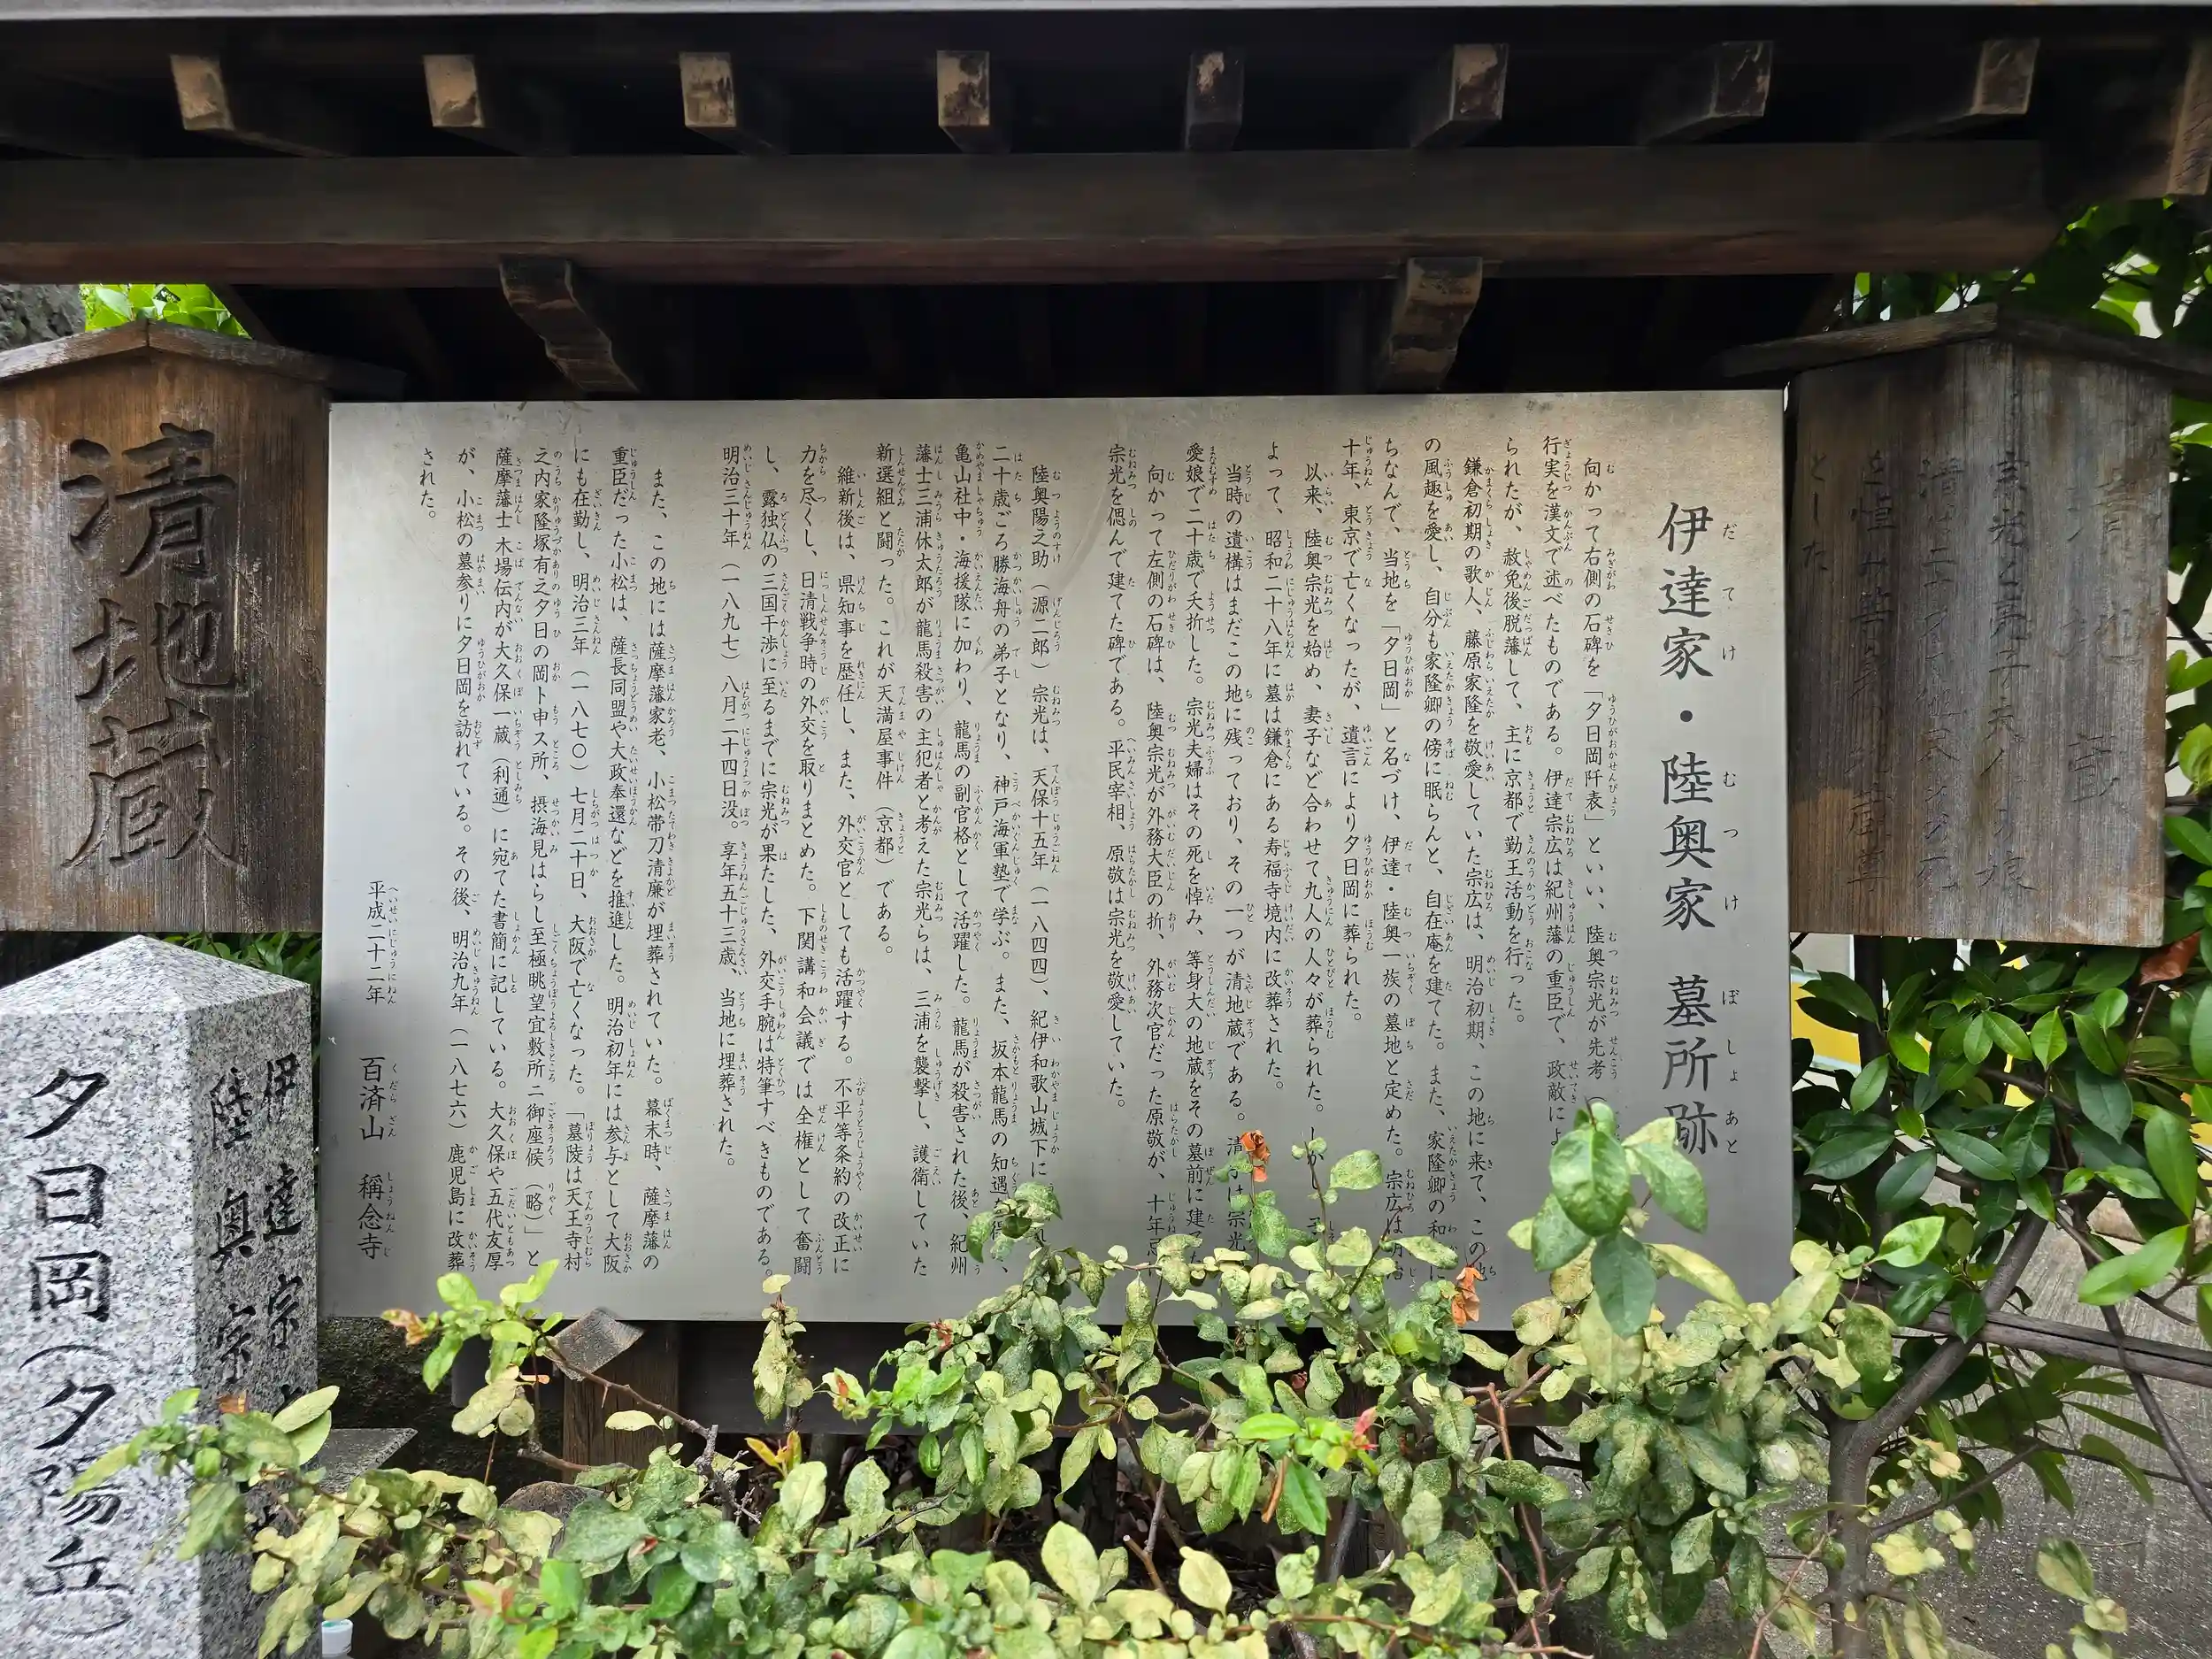 伊達家・陸奥家 墓所跡
向かって右側の石碑を「夕日岡阡表」といい、陸奥宗光が先考
行実を漢文で述べたものである。伊達宗広は紀州藩の重臣で、政敵によ
られたが、赦免後脱藩して、主に京都で勤王活動を行った。
鎌倉初期の歌人、藤原家隆を敬愛していた宗広は、明治初期、この地に来て、この地
の風趣を愛し、自分も家隆卿の傍に眠らんと、自在庵を建てた。また、家隆卿の和
ちなんで、当地を「夕日岡」と名づけ、伊達・陸奥一族の墓地と定めた。宗広は明治
十年、東京で亡くなったが、遺言により夕日岡に葬られた。
以来、陸奥宗光を始め、妻子など合わせて九人の人々が葬られた。しかし
よって、昭和二十八年に墓は鎌倉にある寿福寺境内に改葬された。
当時の遺構はまだこの地に残っており、その一つが清地蔵である。清子は宗光
愛娘で二十歳で夭折した。宗光夫婦はその死を悼み、等身大の地蔵をその墓前に建てた
向かって左側の石碑は、陸奥宗光が外務大臣の折、外務次官だった原敬が、十年忌に
宗光を偲んで建てた碑である。平民宰相、原敬は宗光を敬愛していた。
陸奥陽之助(源二郎)宗光は、天保十五年(一八四四)、紀伊和歌山城下に
二十歳ごろ勝海舟の弟子となり、神戸海軍塾で学ぶ。また、坂本龍馬の知遇を得、
亀山社中・海援隊に加わり、龍馬の副官格として活躍した。龍馬が殺害された後、紀州
藩士三浦休太郎が龍馬殺害の主犯者と考えた宗光らは、三浦を襲撃し、護衛していた
新選組と闘った。これが天満屋事件(京都)である。
維新後は、県知事を歴任し、また、外交官としても活躍する。不平等条約の改正に
力を尽くし、日清戦争時の外交を取りまとめた。下関講和会議では全権として奮闘
し、露独仏の三国干渉に至るまでに宗光が果たした、外交手腕は特筆すべきものである。
明治三十年(一八九七)八月二十四日没。享年五十三歳、当地に埋葬された。
また、この地には薩摩藩家老、小松帯刀清廉が埋葬されていた。幕末時、薩摩藩の
重臣だった小松は、薩長同盟や大政奉還などを推進した。明治初年には参与として大阪
にも在勤し、明治三年(一八七〇)七月二十日、大阪で亡くなった。「墓陵は天王寺村
之内家隆塚有之夕日の岡ト申ス所、摂海見はらし至極眺望宜敷所ニ御座候(略)」と
薩摩藩士木場伝内が大久保一蔵(利通)に宛てた書簡に記している。大久保や五代友厚
が、小松の墓参りに夕日岡を訪れている。その後、明治九年(一八七六)鹿児島に改葬
された。
平成二十二年 百済山 稱念寺
清地蔵
伊達宗
陸奥宗
夕日岡(夕陽丘)